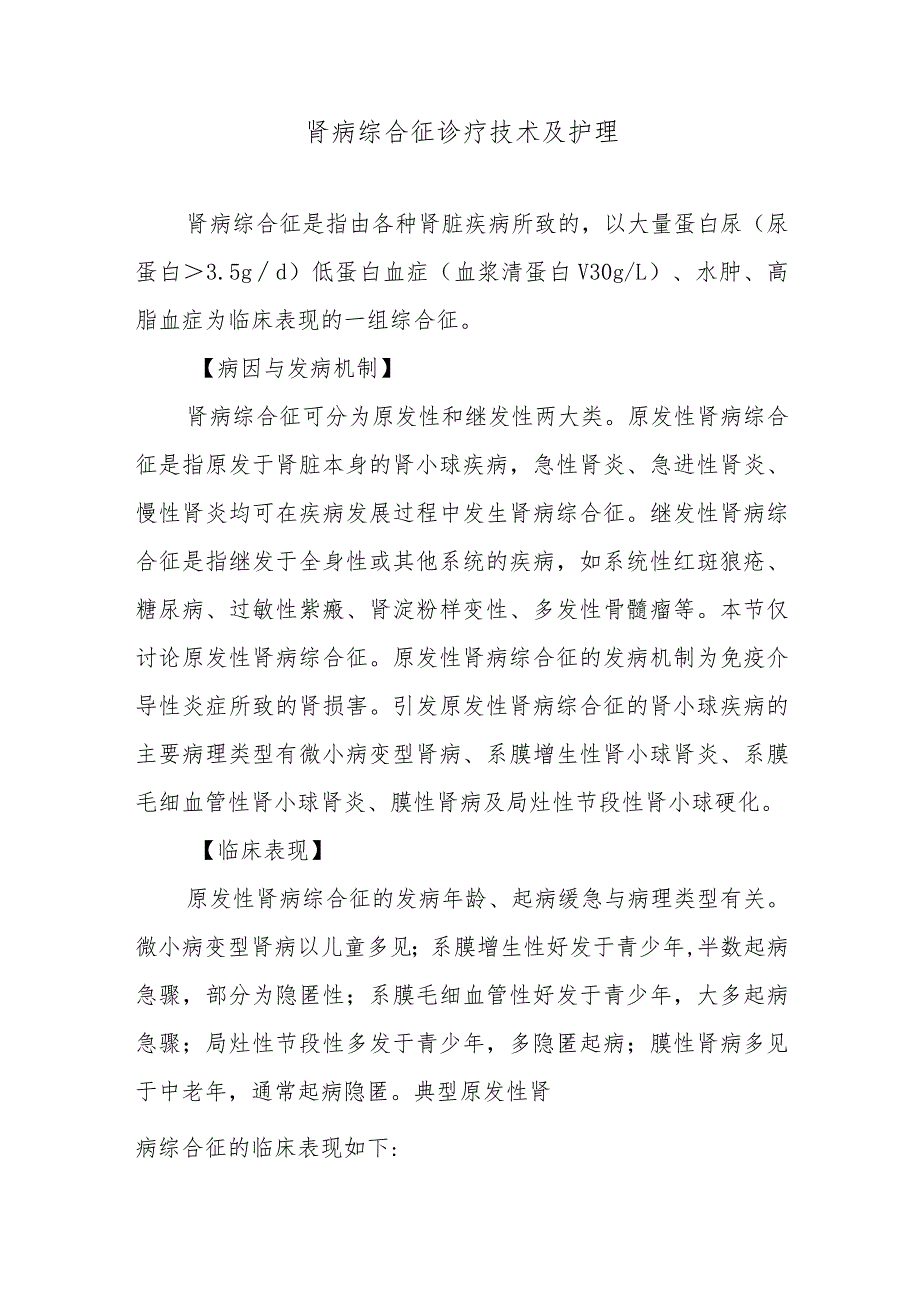 肾病综合征诊疗技术及护理
肾病综合征是指由各种肾脏疾病所致的，以大量蛋白尿（尿
蛋白＞3.5g／d）低蛋白血症（血浆清蛋白V30g/L）、水肿、高
脂血症为临床表现的一组综合征。
【病因与发病机制】
肾病综合征可分为原发性和继发性两大类。原发性肾病综合
征是指原发于肾脏本身的肾小球疾病，急性肾炎、急进性肾炎、
慢性肾炎均可在疾病发展过程中发生肾病综合征。继发性肾病综
合征是指继发于全身性或其他系统的疾病，如系统性红斑狼疮、
糖尿病、过敏性紫癜、肾淀粉样变性、多发性骨髓瘤等。本节仅
讨论原发性肾病综合征。原发性肾病综合征的发病机制为免疫介
导性炎症所致的肾损害。引发原发性肾病综合征的肾小球疾病的
主要病理类型有微小病变型肾病、系膜增生性肾小球肾炎、系膜
毛细血管性肾小球肾炎、膜性肾病及局灶性节段性肾小球硬化。
【临床表现】
原发性肾病综合征的发病年龄、起病缓急与病理类型有关。
微小病变型肾病以儿童多见；系膜增生性好发于青少年,半数起病
急骤，部分为隐匿性；系膜毛细血管性好发于青少年，大多起病
急骤；局灶性节段性多发于青少年，多隐匿起病；膜性肾病多见
于中老年，通常起病隐匿。典型原发性肾
病综合征的临床表现如下: